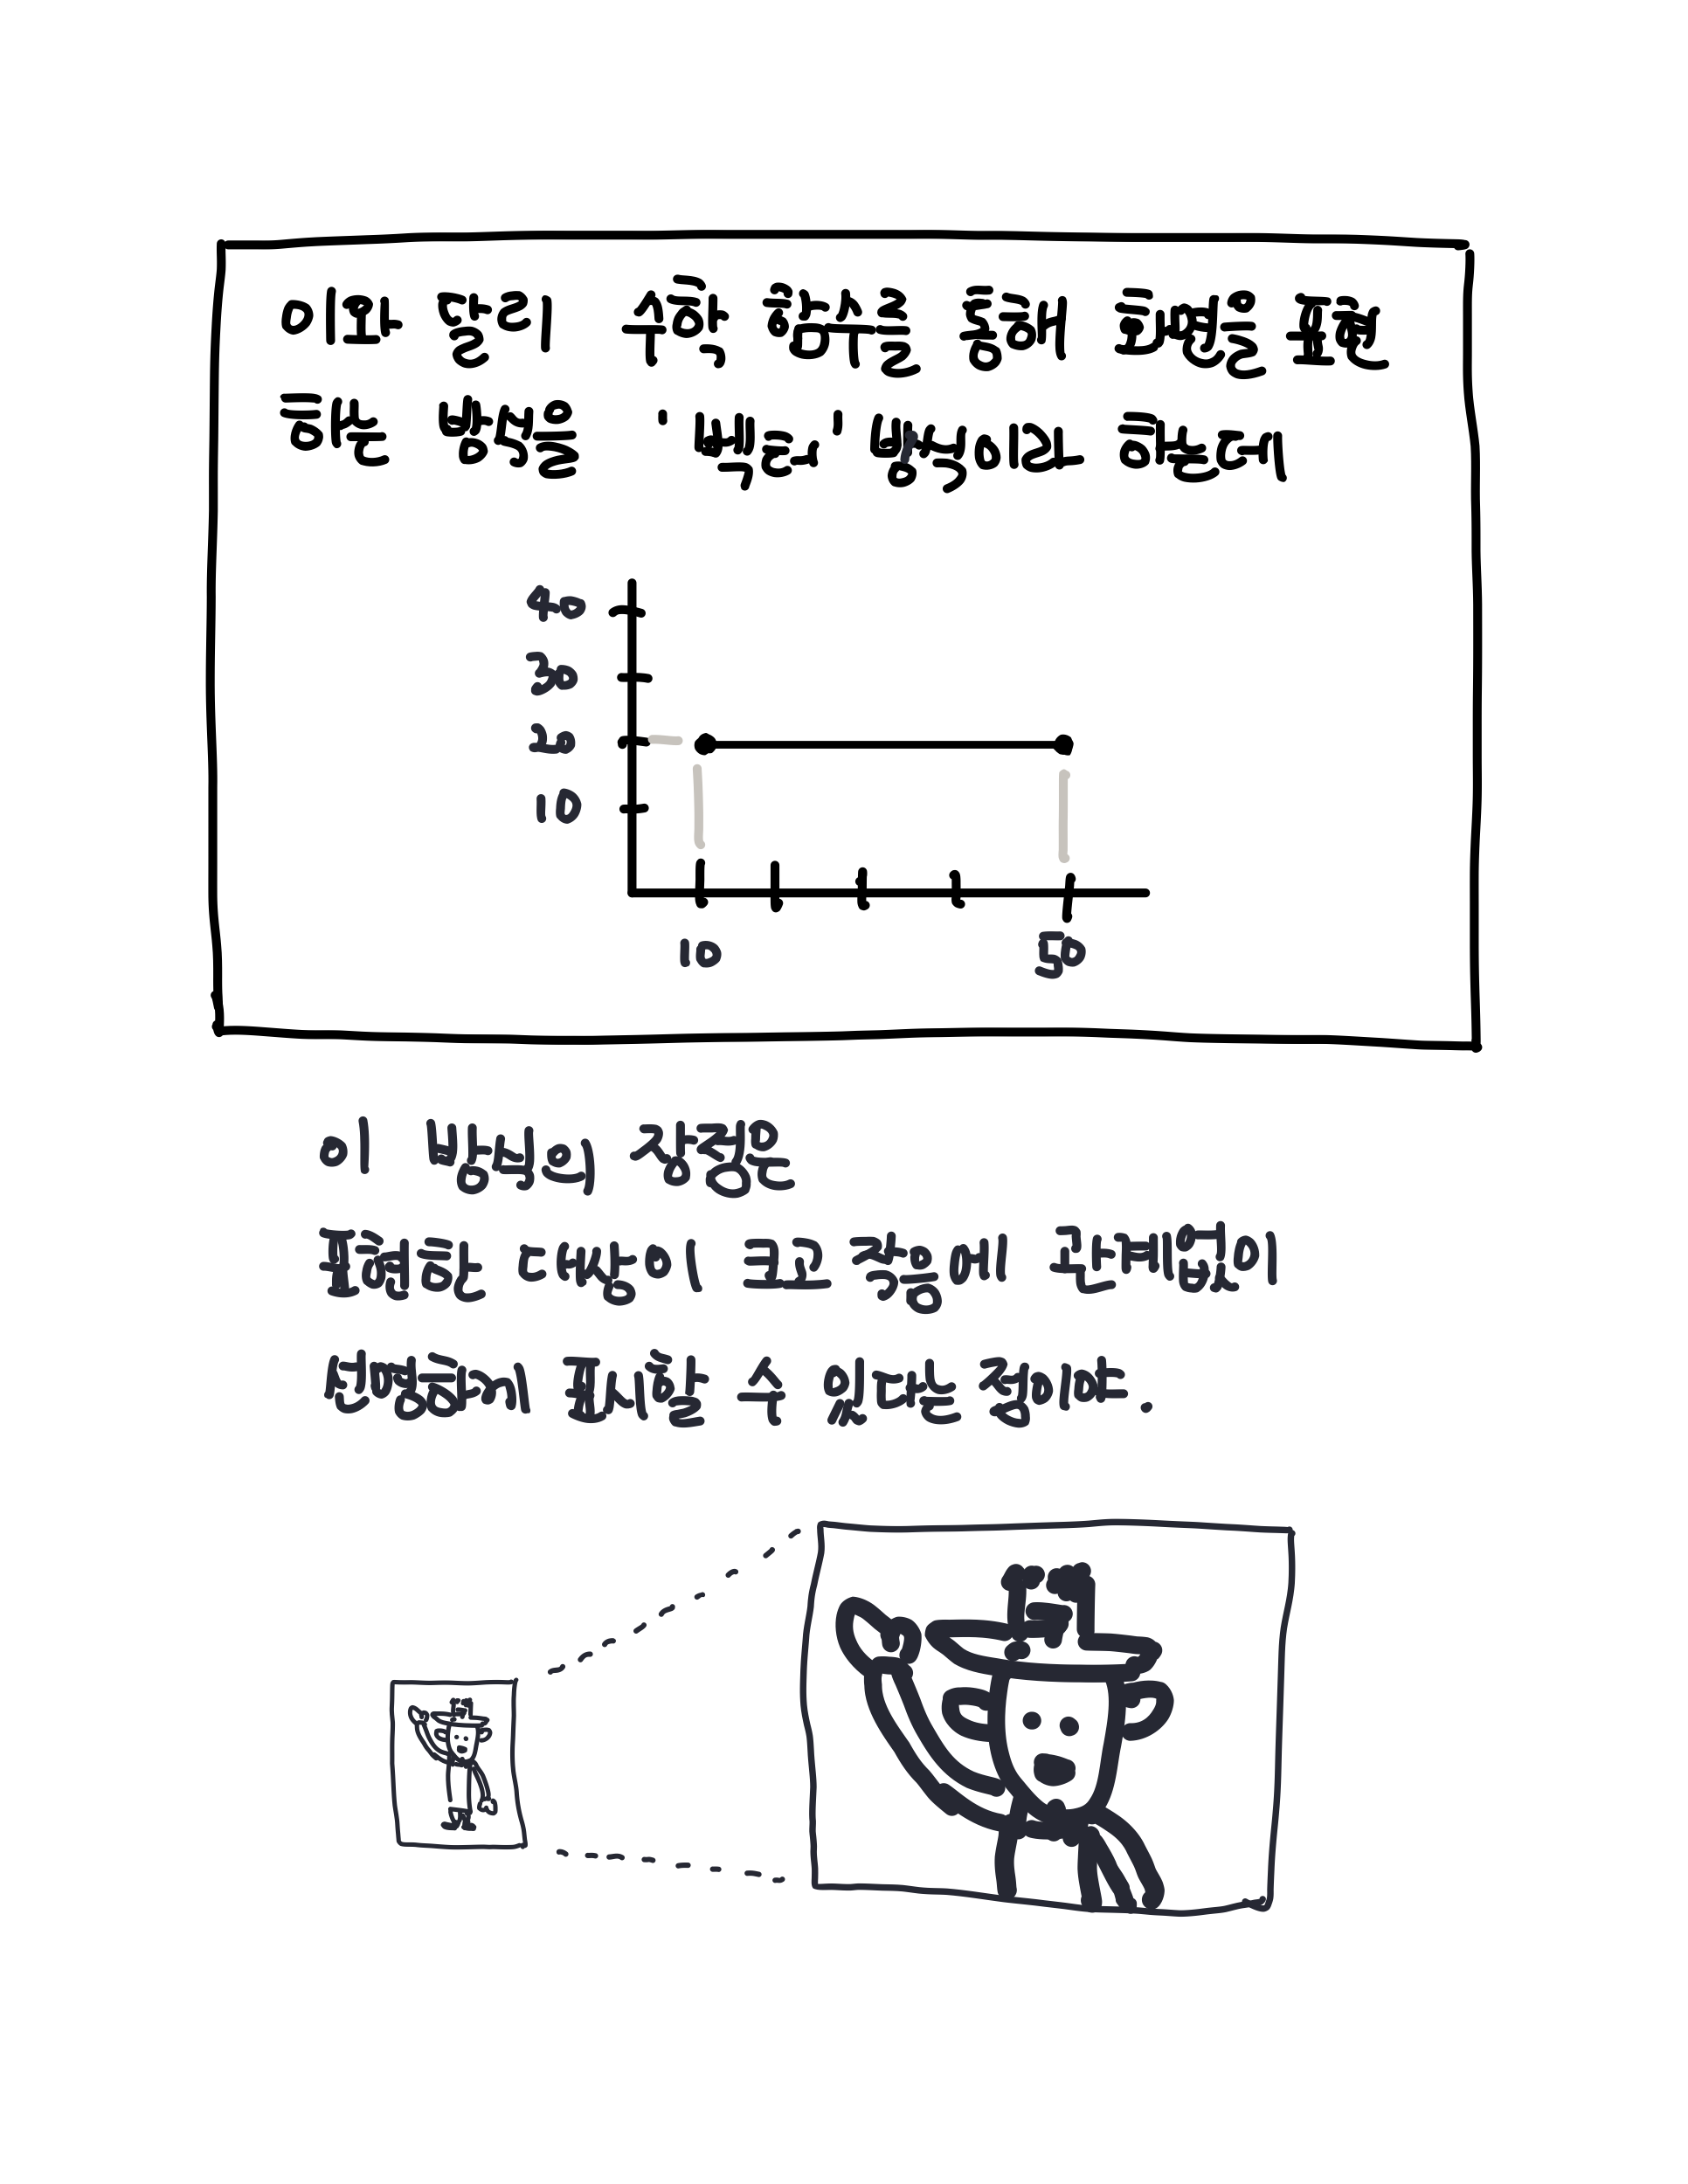 이와 달리 수학 함수를 통해 화면을 표현
하는 방식을 '벡터' 방식이라 하는데
40
30
20
10
10 50
이 방식의 장점은
표현한 대상이 크고 작음에 관계없이
선명하게 표시할 수 있다는 점이야.